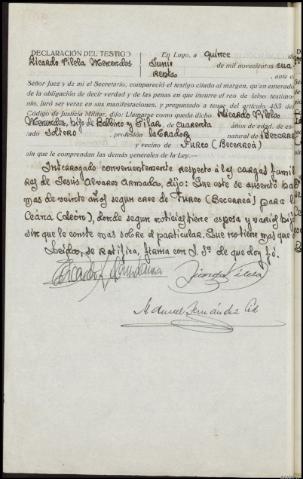 DECLARACIÓN DEL TESTIGO
En Lugo, a quince
Ricardo Pilela Mencendes
Junio
de mil novecientos cua
Señor Juez y de mí el Secretario, compareció el testigo citado al margen, quien enterado
de la obligación de decir verdad y de las penas en que incurre el reo de falso testimo-
nio, juró ser veraz en sus manifestaciones, y preguntado a tenor del artículo 453 del
Código de Justicia Militar, dijo: Llamarse como queda dicho Ricardo
hijo de y Pilar, de cuarenta
años de edad, de es-
tado soltero, profesión labrador, natural de Becerrea
y vecino de Furco (Becerreá)
sin que le comprendan las demás generales de la Ley.
Interrogado convenientemente respecto a las cargas fami
res de Jesús Alvarez Armada, dijo: Que este se ausentó ha
mas de veinte años segun cree de Furco (Becerrea) para
Ceana (León), donde segun noticias tiene esposa y varios hij
sin que le conste mas sobre el particular. Que no tiene mas que
Leidas, se ratifica, firma con S. Sª de que doy fé.
Manuel Fernández Cid